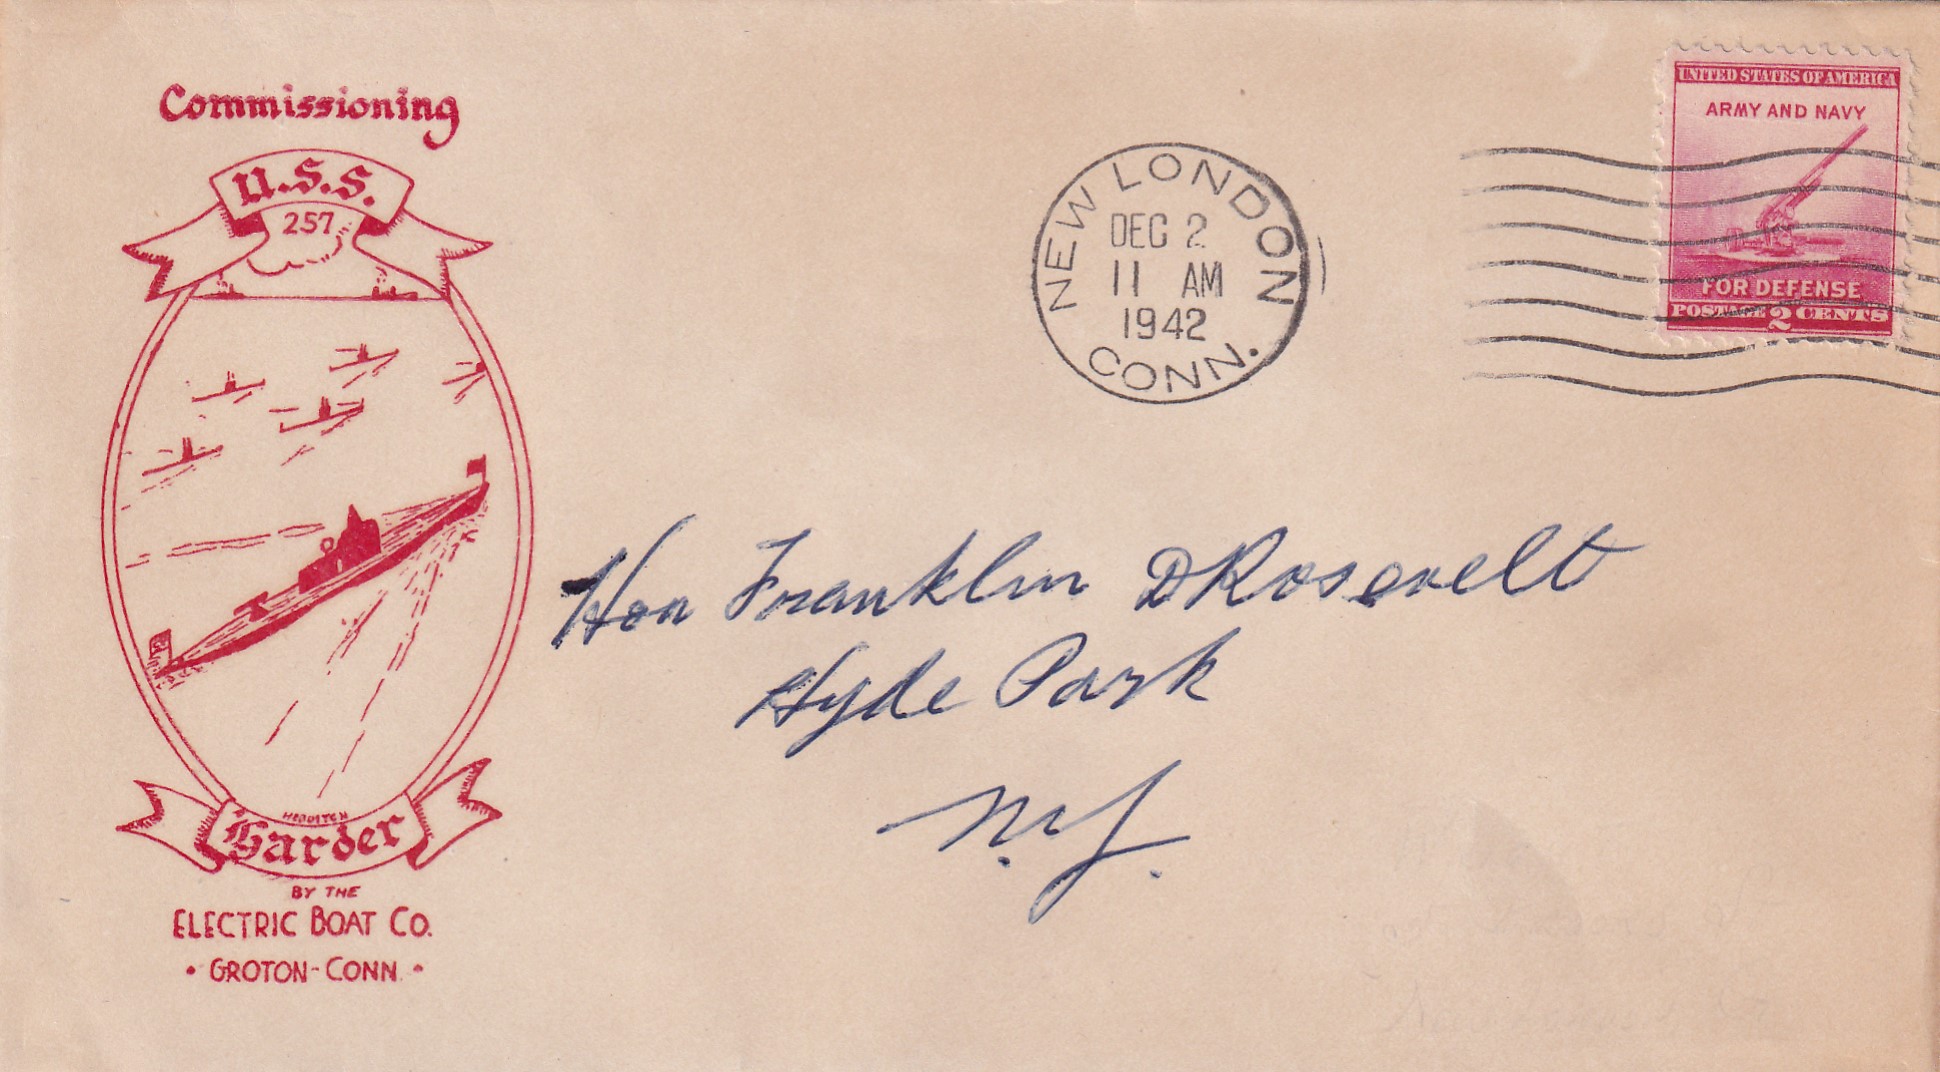 Commissioning
U.S.S.
257
Harder
BY THE
ELECTRIC BOAT CO.
• GROTON - CONN. •
NEW LONDON
DEC 2
11 AM
1942
CONN.
UNITED STATES OF AMERICA
ARMY AND NAVY
FOR DEFENSE
POSTAGE 2 CENTS
Hon Franklin D Rosevelt
Hyde Park
N.Y.